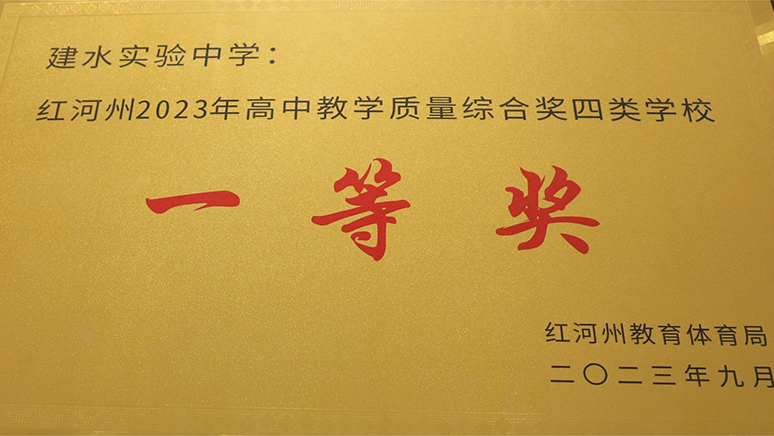 建水实验中学：
红河州2023年高中教学质量综合奖四类学校
一等奖
红河州教育体育局
二〇二三年九月